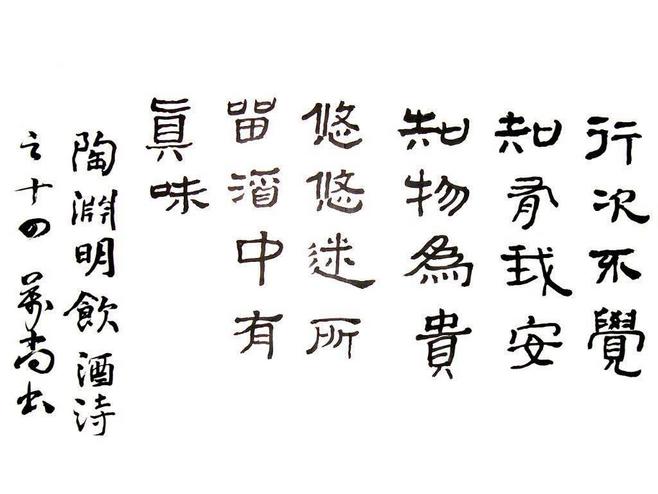 行次不覺
知有我安
知物為貴
悠悠迷所
留酒中有
眞味
陶淵明飲酒詩
之十四 尚书